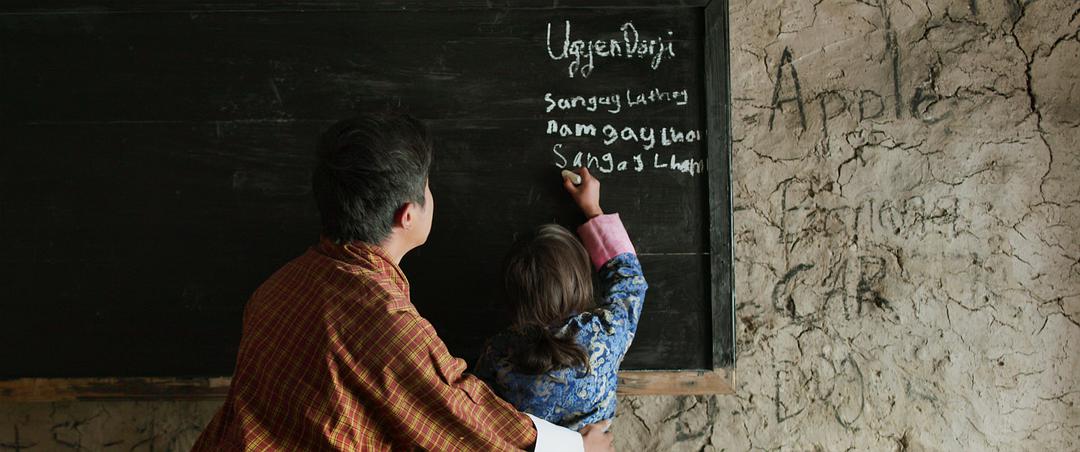 Ugyen Dorji
Sangay Lathog
namgay Lhai
Sangay Lham
Apple
CAR